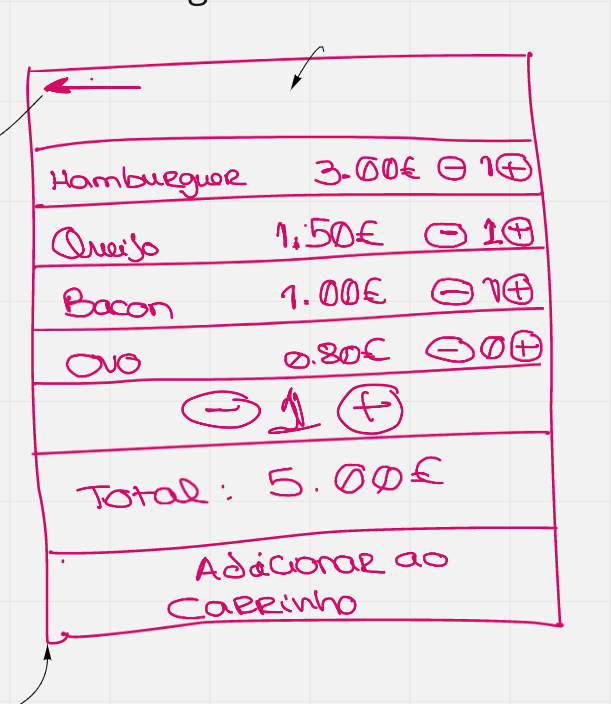 Hambueguer 3.00€ - 1 +
Queijo 1,50€ - 1 +
Bacon 1.00€ - 1 +
OVO 0.80€ - 0 +
- 1 +
Total: 5.00€
Adicionar ao
Carrinho